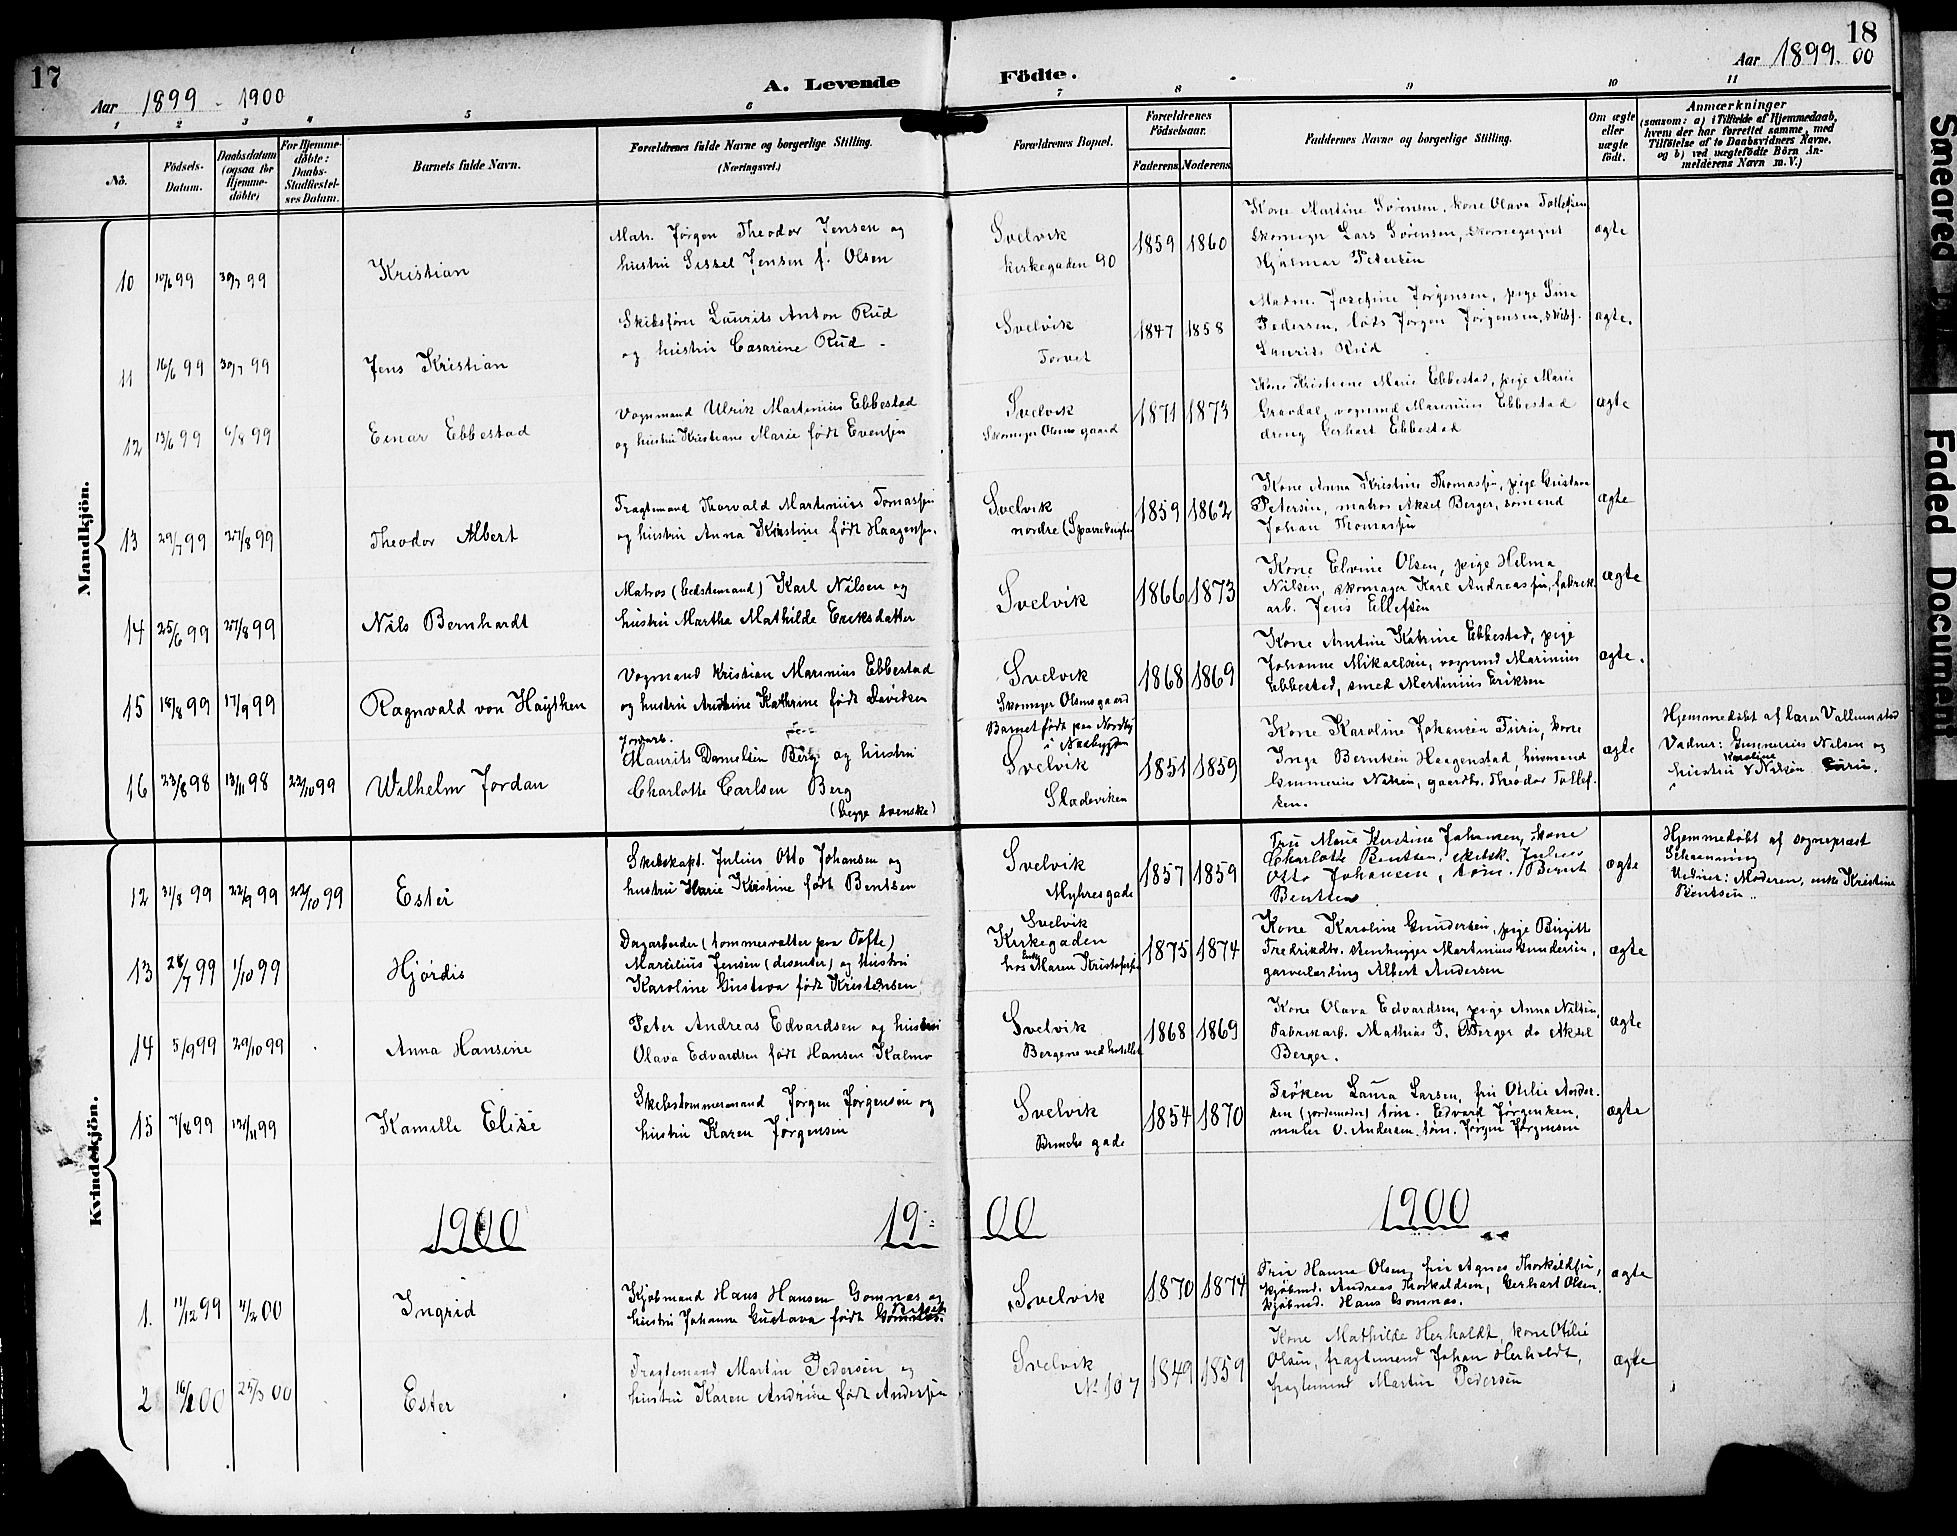 17
18
Aar 1899 - 1900
A. Levende Födte.
Aar 1899. 00
1 2 3 4 5 6 7 8 9 10 11
No.
Födsels-Datum.
Daabsdatum (ogsaa for Hjemme-döbte)
For Hjemme-döbte: Daabs-Stadfæstel-ses Datum.
Barnets fulde Navn.
Forældrenes fulde Navne og borgerlige Stilling.
(Næringsvei.)
Forældrenes Bopæl.
Forældrenes Födselsaar.
Faderens
Moderens
Faddernes Navne og borgerlige Stilling.
Om ægte eller uægte födt.
Anmærkninger
(saasom: a) i Tilfælde af Hjemmedaab, hvem der har forrettet samme, med Tilföielse af to Daabsvidners Navne, og b) ved uægtefödte Börn An-melderens Navn m. V.)
Mandkjön.
10 10/6 99 30/7 99 Kristian
Matr. Jørgen Theodor Jensen og
hustru Sissel Jensen f. Olsen
Svelvik
Kirkegaden 90
1859 1860
Kone Martine Sørensen, kone Olava Tollefsen
Skomager Lars Sørensen, skomagersvend
Hjalmar Pedersen
ægte
11 16/6 99 30/7 99 Jens Kristian
Skibsfører Laurits Anton Rud
og hustru Casarine Rud -
Svelvik
Torvet
1847 1858
Madm. Josefine Jørgensen, pige Sina
Pedersen, lods Jørgen Jørgensen, skibsf.
Laurits Rud
ægte.
12 13/6 99 6/8 99 Einar Ebbestad
Vognmand Ulrik Martinius Ebbestad
og hustru Kristiane Marie født Evensen
Svelvik
Skomager Olsens gaard
1871 1873
Kone Kristiane Marie Ebbestad, pige Marie
Gravdal, vognmd Marinius Ebbestad
dreng Gerhart Ebbestad
ægte
13 29/7 99 27/8 99 Theodor Albert
Fragtemand Thorvald Martinius Tomassen
og hustru Anna Kristine født Haagensen.
Svelvik
nordre (Sparrebugten
1859 1862
Kone Anna Kristine Thomassen, pige Gustava
Petersen, matros Aksel Berger, sømand
Johan Thomassen
ægte
14 25/6 99 27/8 99 Nils Bernhardt
Matros (bedstemand) Karl Nilsen og
hustru Martha Mathilde Eriksdatter
Svelvik
1866 1873
Kone Elvine Olsen, pige Helma
Nilsen, skomager Karl Andreassen, fabrik
arb. Jens Ellefsen
ægte
15 18/8 99 17/9 99 Ragnvald von Haythen
Vogmand Kristian Marinius Ebbestad
og hustru Arntine Kathrine født Davidsen
Svelvik
Skomager Olsensgaard
Barnet født paa Nordby
i Aasbygden
1868 1869
Kone Arntine Katrine Ebbestad, pige
Johanne Mikaelsen, vognmd Marinius
Ebbestad, smed Martinius Eriksen
ægte.
16 23/8 98 13/11 98 22/10 99 Wilhelm Jordan
Jordarb.
Maurits Danielsen Berg og hustru
Charlotte Carlsen Berg
(begge svenske)
Svelvik
Stadeviken
1851 1859
Kone Karoline Johansen Furu, kone
Inga Berntsen Haagenstad, husmand
Gunnerius Nilsen, gaardbr. Theodor Tollef-
sen.
ægte
Hjemmedøbt af lærer Vallumstad
Vadner: Gunnerius Nilsen og
hustru Karoline Nilsen Furu.
Kvindekjön.
12 31/8 99 22/9 99 22/10 99 Ester
Skibskapt. Julius Otto Johansen og
hustru Marie Kristine født Bentsen
Svelvik
Myhresgade
1857 1859
Fru Maria Kirstine Johansen, kone
Charlotte Bentsen, skibsk. Julius
Otto Johansen, tøm. Bernt
Bentsen
ægte
Hjemmedøbt af sogneprest
Schanning
Vidner: Moderen, enke Kristine
Bentsen.
13 28/7 99 1/10 99 Hjørdis
Dagarbeider (tømmesvalter paa Tofte)
Marcelius Jensen (disenter) og hustru
Karoline Gustava født Kristensen
Svelvik
Kirkegaden
hos Enke Maren Kristofersen
1875 1874
Kone Karoline Gundersen, pige Birgitte
Fredriksdtr. stenhugger Martinius Gundersen,
garverlærling Albert Andersen
ægte
14 5/9 99 29/10 99 Anna Hansine
Peter Andreas Edvardsen og hustru
Olava Edvardsen født Hansen Kalmo
Svelvik
Bergene ved hotellet
1868 1869
Kone Olava Edvardsen, pige Anna Nilsen,
Fabrikarb. Mathias P. Berger do Aksel
Berger.
ægte
15 7/8 99 12/11 99 Kamille Elise
Skibstømmermand Jørgen Jørgensen og
hustru Karen Jørgensen
Svelvik
Brochs gade
1854 1870
Frøken Laura Larsen, fru Otilie Andor-
sen (jordemoder) tøm. Edvard Jørgensen,
maler O. Andersen, tøm. Jørgen Jørgensen
ægte
1900 19= 00 1900
1. 11/12 99 4/2 00 Ingrid
Kjøbmand Hans Hansen Gomnæs og
hustru Johanne Gustava født
Svelvik
1870 1874
Fru Hanna Olsen, fru Agnes Thorkildsen,
kjøbmd. Andreas Thorkildsen, Gerhart Olsen,
kjøbmd. Hans Gomnæs.
ægte
2 16/1 00 25/3 00 Ester
Fragtemand Martin Pedersen og
hustru Karen Andrine født Andersen
Svelvik
No 107
1849 1859
Kone Mathilde Herholdt, kone Otilie
Olsen, fragtemand Johan Herholdt,
fragtemand Martin Pedersen
ægte
Smeared
Faded Document